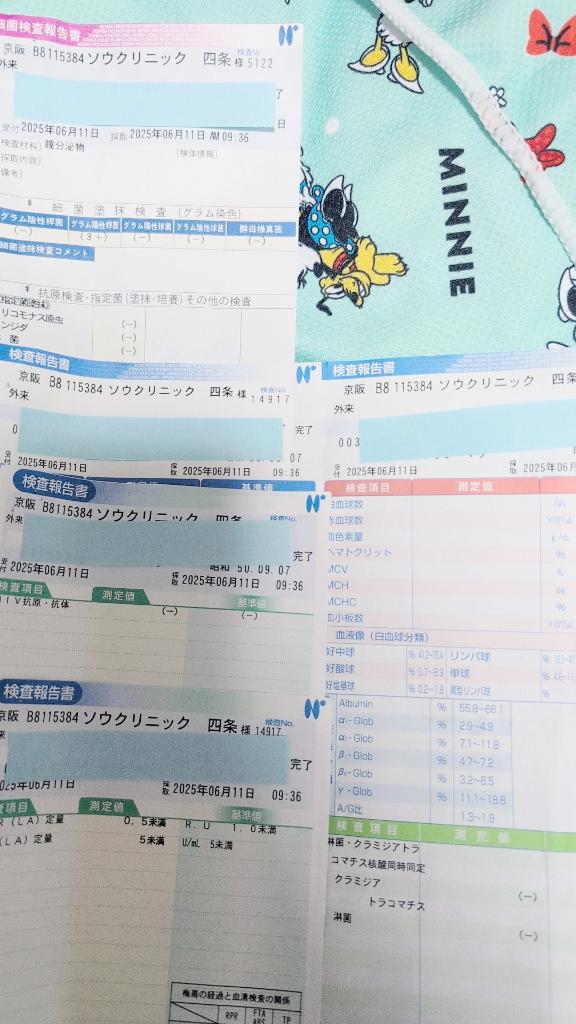 細菌検査報告書
京阪 B8115384 ソウクリニック 四条 様 検査No. 5122
外来
了
日
受付 2025年06月11日 採取 2025年06月11日 AM 09:36
検査材料) 腟分泌物 (検体情報)
採取内容)
備考)
* 細菌塗抹検査 (グラム染色)
グラム陰性桿菌 グラム陽性桿菌 グラム陽性球菌 グラム陰性球菌 酵母様真菌
(−) (3+) (−) (−) (−)
細菌塗抹検査コメント
* 抗原検査・指定菌(塗抹・培養)その他の検査
(指定菌塗抹)
リコモナス原虫 (−)
ンジダ (−)
菌 (−)
MINNIE
検査報告書
京阪 B8 115384 ソウクリニック 四条 様 検査No. 14917
外来
0 完了
07
受付 2025年06月11日 採取 2025年06月11日 09:36
測定値 基準値
検査報告書
京阪 B8115384 ソウクリニック 四条 検査No.
外来
完了
昭和 50.09.07
受付 2025年06月11日 採取 2025年06月11日 09:36
検査項目 測定値 基準値
IV抗原・抗体 (−) (−)
検査報告書
京阪 B8115384 ソウクリニック 四条 様 検査No. 14917
外来
完了
2025年06月11日 採取 2025年06月11日 09:36
項目 測定値 基準値
R (LA) 定量 0.5未満 R.U 1.0未満
(LA) 定量 5未満 U/mL 5未満
梅毒の経過と血清検査の関係
RPR FTA ABS TP
検査報告書
京阪 B8 115384 ソウクリニック 四条
外来
003
受付 2025年06月11日 採取 2025年06月
検査項目 測定値
白血球数 /μL
赤血球数 ×10⁴/μL
血色素量 g/dL
ヘマトクリット %
MCV fL
MCH pg
MCHC %
血小板数 ×10⁴/μL
血液像(白血球分類)
好中球 % 41.2~75.4 リンパ球 %
好酸球 % 0.7~8.9 単球 %
好塩基球 % 0.2~1.8 異型リンパ球 %
Albumin % 55.8~66.1
α₁-Glob % 2.9~4.9
α₂-Glob % 7.1~11.8
β₁-Glob % 4.7~7.2
β₂-Glob % 3.2~6.5
γ-Glob % 11.1~18.8
A/G比 1.3~1.9
検査項目 測定値
淋菌・クラミジアトラ
コマチス核酸同時同定
クラミジア (−)
トラコマチス
淋菌 (−)